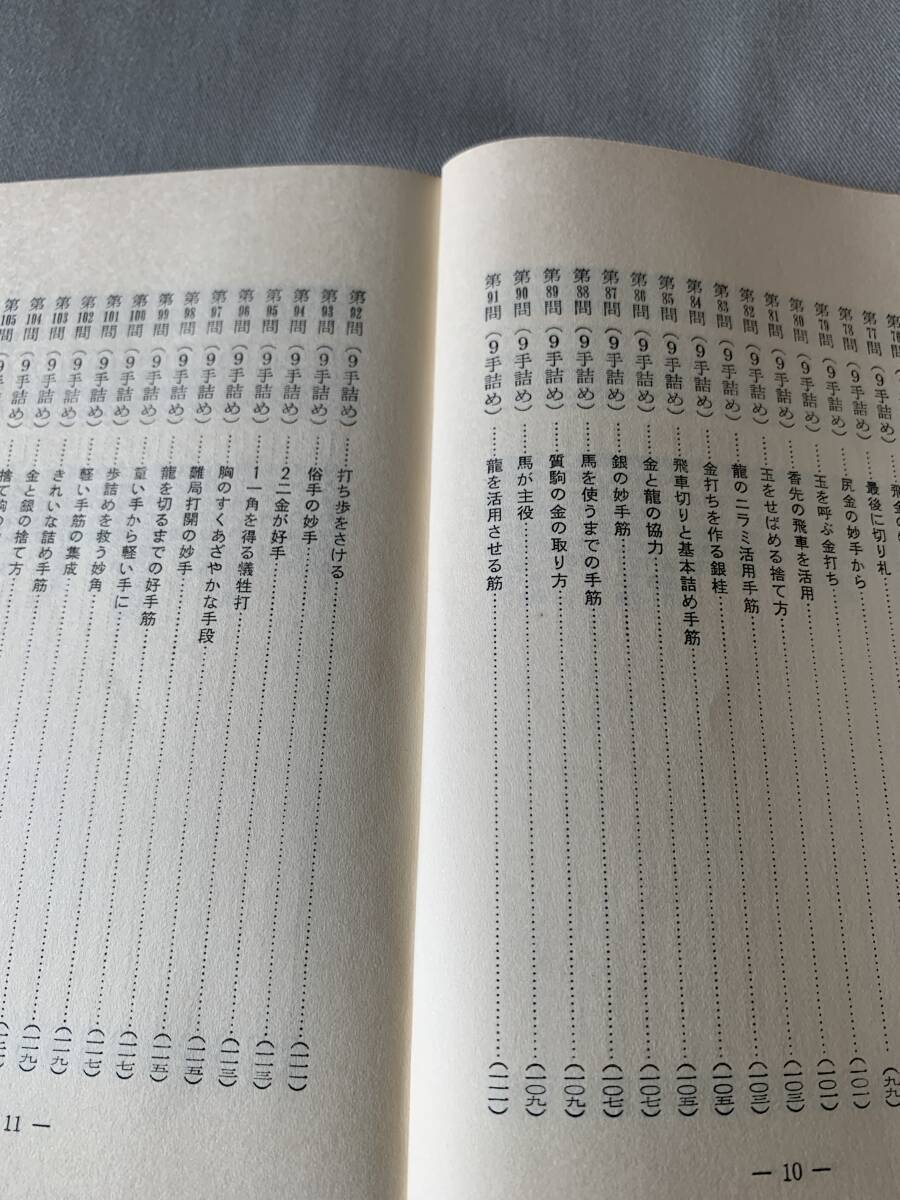 第76問
第77問(9手詰め)
第78問(9手詰め)……最後に切り札……
第79問(9手詰め)……尻金の妙手から……
第80問(9手詰め)……玉を呼ぶ金打ち……(九九)
第81問(9手詰め)……香先の飛車を活用……(一〇一)
第82問(9手詰め)……玉をせばめる捨て方……(一〇一)
第83問(9手詰め)……龍のニラミ活用手筋……(一〇三)
第84問(9手詰め)……金打ちを作る銀桂……(一〇三)
第85問(9手詰め)……飛車切りと基本詰め手筋……(一〇五)
第86問(9手詰め)……金と龍の協力……(一〇五)
第87問(9手詰め)……銀の妙手筋……(一〇七)
第88問(9手詰め)……馬を使うまでの手筋……(一〇七)
第89問(9手詰め)……質駒の金の取り方……(一〇九)
第90問(9手詰め)……馬が主役……(一〇九)
第91問(9手詰め)……龍を活用させる筋……(一一一)
— 10 —
第92問(9手詰め)……打ち歩をさける……(一一一)
第93問(9手詰め)……俗手の妙手……(一一三)
第94問(9手詰め)……2二金が好手……(一一三)
第95問(9手詰め)……1一角を得る犠牲打……(一一五)
第96問(9手詰め)……胸のすくあざやかな手段……(一一五)
第97問(9手詰め)……難局打開の妙手……(一一七)
第98問(9手詰め)……龍を切るまでの好手筋……(一一七)
第99問(9手詰め)……重い手から軽い手に……(一一九)
第100問(9手詰め)……歩詰めを救う妙角……(一一九)
第101問(9手詰め)……軽い手筋の集成……
第102問(9手詰め)……きれいな詰め手筋……
第103問(9手詰め)……金と銀の捨て方……
第104問(9手詰め)……捨て駒の
第105問(9手詰め)
11 —